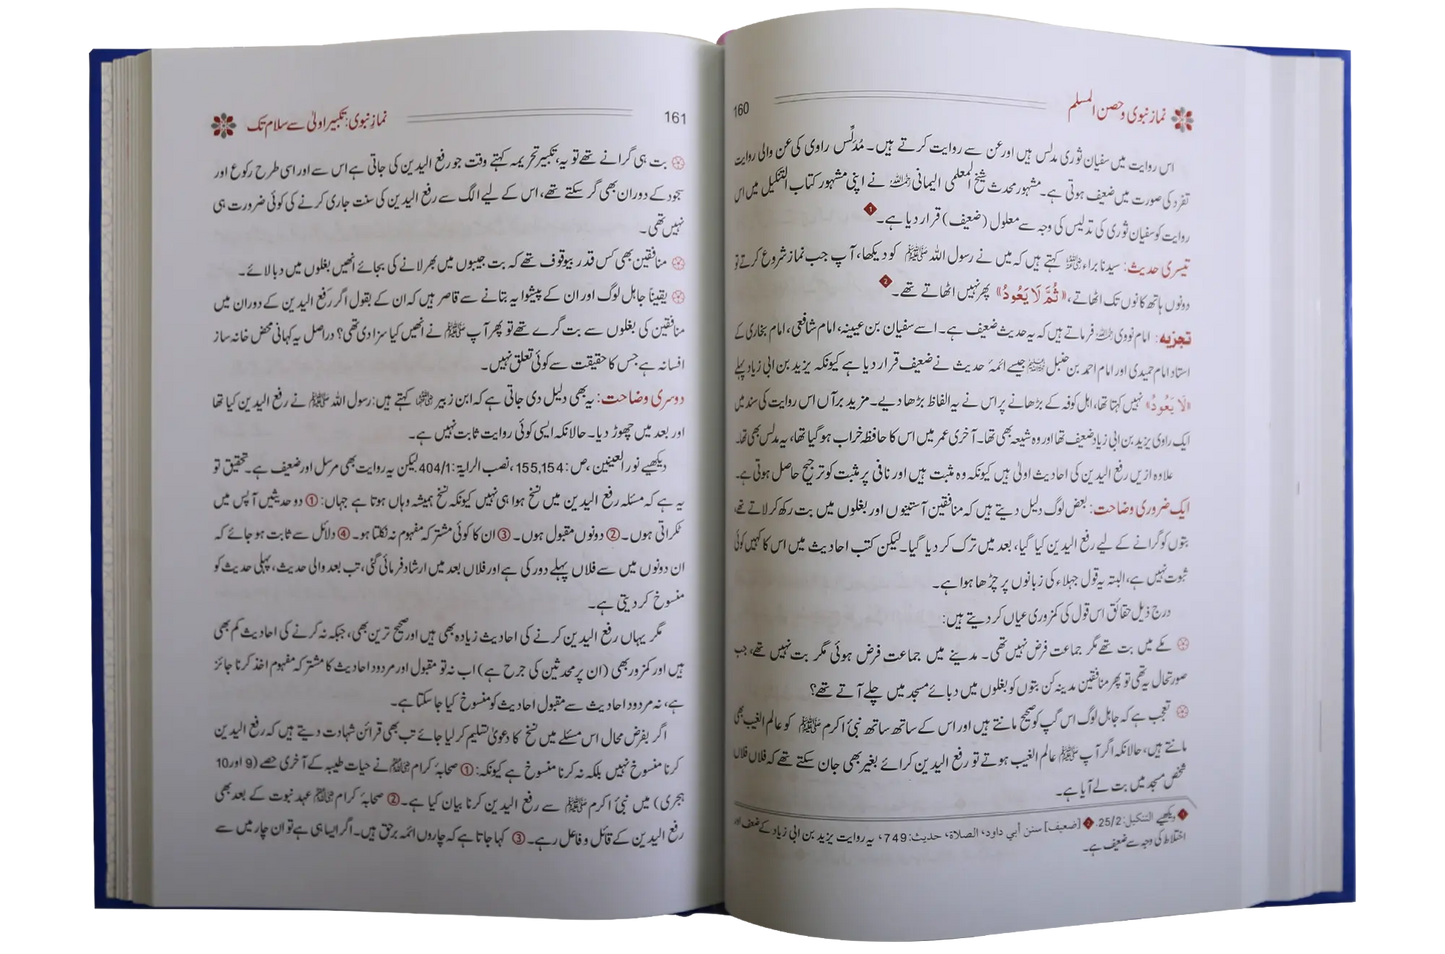 160 نماز نبوی و حصن المسلم
اس روایت میں سفیان ثوری مدلس ہیں اور عن سے روایت کرتے ہیں۔ مُدلِّس راوی کی عن والی روایت
تفرد کی صورت میں ضعیف ہوتی ہے۔ مشہور محدث شیخ المعلمی الیمانی رحمہ اللہ نے اپنی مشہور کتاب التنکیل میں اس
روایت کو سفیان ثوری کی تدلیس کی وجہ سے معلول (ضعیف) قرار دیا ہے۔ 1
تیسری حدیث: سیدنا براء رضی اللہ عنہ کہتے ہیں کہ میں نے رسول اللہ ﷺ کو دیکھا، آپ جب نماز شروع کرتے تو
دونوں ہاتھ کانوں تک اٹھاتے، «ثُمَّ لَا يَعُودُ» پھر نہیں اٹھاتے تھے۔ 2
تجزیہ: امام نووی رحمہ اللہ فرماتے ہیں کہ یہ حدیث ضعیف ہے۔ اسے سفیان بن عیینہ، امام شافعی، امام بخاری کے
استاد امام حمیدی اور امام احمد بن حنبل جیسے ائمۂ حدیث نے ضعیف قرار دیا ہے کیونکہ یزید بن ابی زیاد پہلے
«لَا يَعُودُ» نہیں کہتا تھا، اہل کوفہ کے پڑھانے پر اس نے یہ الفاظ بڑھا دیے۔ مزید برآں اس روایت کی سند میں
ایک راوی یزید بن ابی زیاد ضعیف تھا اور وہ شیعہ بھی تھا۔ آخری عمر میں اس کا حافظہ خراب ہو گیا تھا، یہ مدلس بھی تھا۔
علاوہ ازیں رفع الیدین کی احادیث اولیٰ ہیں کیونکہ وہ مثبت ہیں اور نافی پر مثبت کو ترجیح حاصل ہوتی ہے۔
ایک ضروری وضاحت: بعض لوگ دلیل دیتے ہیں کہ منافقین آستینوں اور بغلوں میں بت رکھ کر لاتے تھے،
بتوں کو گرانے کے لیے رفع الیدین کیا گیا، بعد میں ترک کر دیا گیا۔ لیکن کتب احادیث میں اس کا کہیں کوئی
ثبوت نہیں ہے، البتہ یہ قول جہلاء کی زبانوں پر چڑھا ہوا ہے۔
درج ذیل حقائق اس قول کی کمزوری عیاں کر دیتے ہیں:
مکے میں بت تھے مگر جماعت فرض نہیں تھی۔ مدینے میں جماعت فرض ہوئی مگر بت نہیں تھے، جب
صورتحال یہ تھی تو پھر منافقین مدینہ کن بتوں کو بغلوں میں دبائے مسجد میں چلے آتے تھے؟
تعجب ہے کہ جاہل لوگ اس گپ کو صحیح مانتے ہیں اور اس کے ساتھ ساتھ نبیٔ اکرم ﷺ کو عالم الغیب بھی
مانتے ہیں، حالانکہ اگر آپ ﷺ عالم الغیب ہوتے تو رفع الیدین کرائے بغیر بھی جان سکتے تھے کہ فلاں فلاں
شخص مسجد میں بت لے آیا ہے۔
1 دیکھیے التنکیل: 25/2. 2 [ضعیف] سنن أبي داود، الصلاة، حدیث: 749، یہ روایت یزید بن ابی زیاد کے ضعف اور
اختلاط کی وجہ سے ضعیف ہے۔
نماز نبوی: تکبیر اولیٰ سے سلام تک 161
بت ہی گرانے تھے تو یہ، تکبیر تحریمہ کہتے وقت جو رفع الیدین کی جاتی ہے اس سے اور اسی طرح رکوع اور
سجود کے دوران بھی گر سکتے تھے، اس کے لیے الگ سے رفع الیدین کی سنت جاری کرنے کی کوئی ضرورت ہی
نہیں تھی۔
منافقین بھی کس قدر بیوقوف تھے کہ بت جیبوں میں بھر لانے کی بجائے انھیں بغلوں میں دبا لائے۔
یقیناً جاہل لوگ اور ان کے پیشوا یہ بتانے سے قاصر ہیں کہ ان کے بقول اگر رَفع الیدین کے دوران میں
منافقین کی بغلوں سے بت گرے تھے تو پھر آپ ﷺ نے انھیں کیا سزا دی تھی؟ دراصل یہ کہانی محض خانہ ساز
افسانہ ہے جس کا حقیقت سے کوئی تعلق نہیں۔
دوسری وضاحت: یہ بھی دلیل دی جاتی ہے کہ ابن زبیر رضی اللہ عنہما کہتے ہیں: رسول اللہ ﷺ نے رفع الیدین کیا تھا
اور بعد میں چھوڑ دیا۔ حالانکہ ایسی کوئی روایت ثابت نہیں ہے۔
دیکھیے نور العینین، ص: 155,154، نصب الرایۃ: 404/1 لیکن یہ روایت بھی مرسل اور ضعیف ہے۔ تحقیق تو
یہ ہے کہ مسئلہ رفع الیدین میں نسخ ہوا ہی نہیں کیونکہ نسخ ہمیشہ وہاں ہوتا ہے جہاں: ① دو حدیثیں آپس میں
ٹکراتی ہوں۔ ② دونوں مقبول ہوں۔ ③ ان کا کوئی مشترکہ مفہوم نہ نکلتا ہو۔ ④ دلائل سے ثابت ہو جائے کہ
ان دونوں میں سے فلاں پہلے دور کی ہے اور فلاں بعد میں ارشاد فرمائی گئی، تب بعد والی حدیث، پہلی حدیث کو
منسوخ کر دیتی ہے۔
مگر یہاں رفع الیدین کرنے کی احادیث زیادہ بھی ہیں اور صحیح ترین بھی، جبکہ نہ کرنے کی احادیث کم بھی
ہیں اور کمزور بھی (ان پر محدثین کی جرح ہے) اب نہ تو مقبول اور مردود احادیث کا مشترکہ مفہوم اخذ کرنا جائز
ہے، نہ مردود احادیث سے مقبول احادیث کو منسوخ کیا جا سکتا ہے۔
اگر بفرض محال اس مسئلے میں نسخ کا دعویٰ تسلیم کر لیا جائے تب بھی قرائن شہادت دیتے ہیں کہ رفع الیدین
کرنا منسوخ نہیں بلکہ نہ کرنا منسوخ ہے کیونکہ: ① صحابۂ کرام نے حیات طیبہ کے آخری حصے (9 اور 10
ہجری) میں نبیٔ اکرم ﷺ سے رفع الیدین کرنا بیان کیا ہے۔ ② صحابۂ کرام عہد نبوت کے بعد بھی
رفع الیدین کے قائل و فاعل رہے۔ ③ کہا جاتا ہے کہ چاروں ائمہ برحق ہیں۔ اگر ایسا ہی ہے تو ان چار میں سے